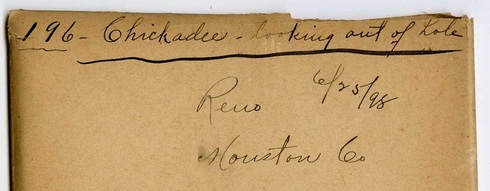 196 - Chickadee - looking out of hole
6/25/98
Reno
Houston Co